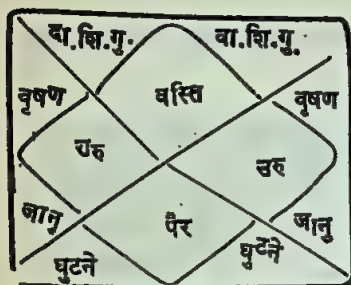 वा.शि.गु. वा.शि.गु.
वृषण वस्ति वृषण
उरु उरु
जानु पैर जानु
घुटने घुटने